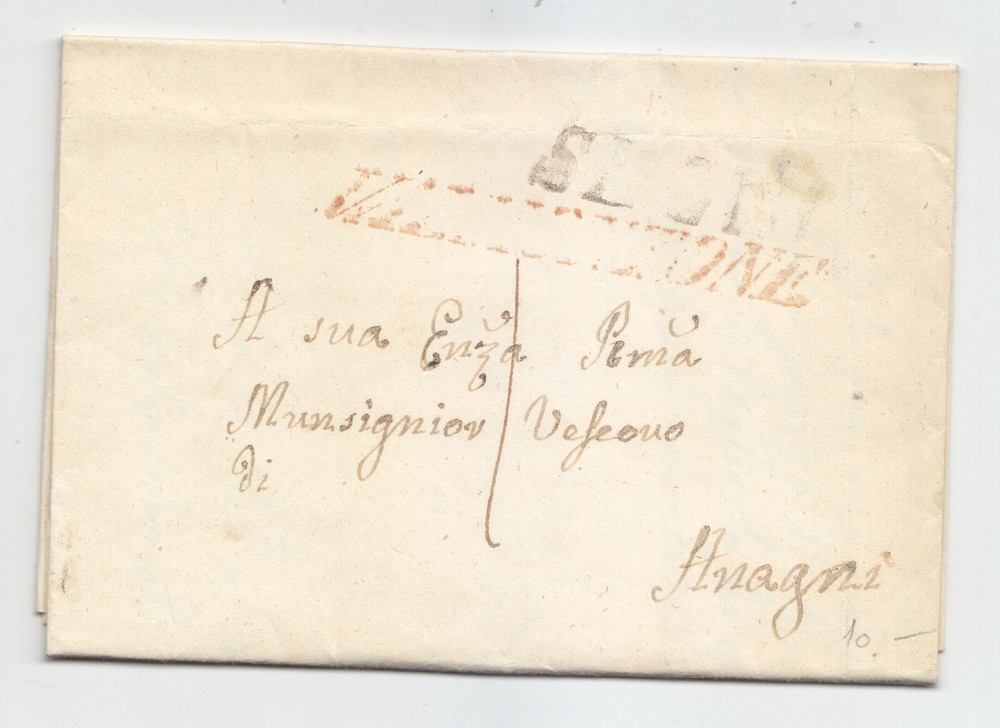 SEGNI
VALMONTONE
A sua Enza Rma
Munsignior Vescovo
di
Anagni
10. —